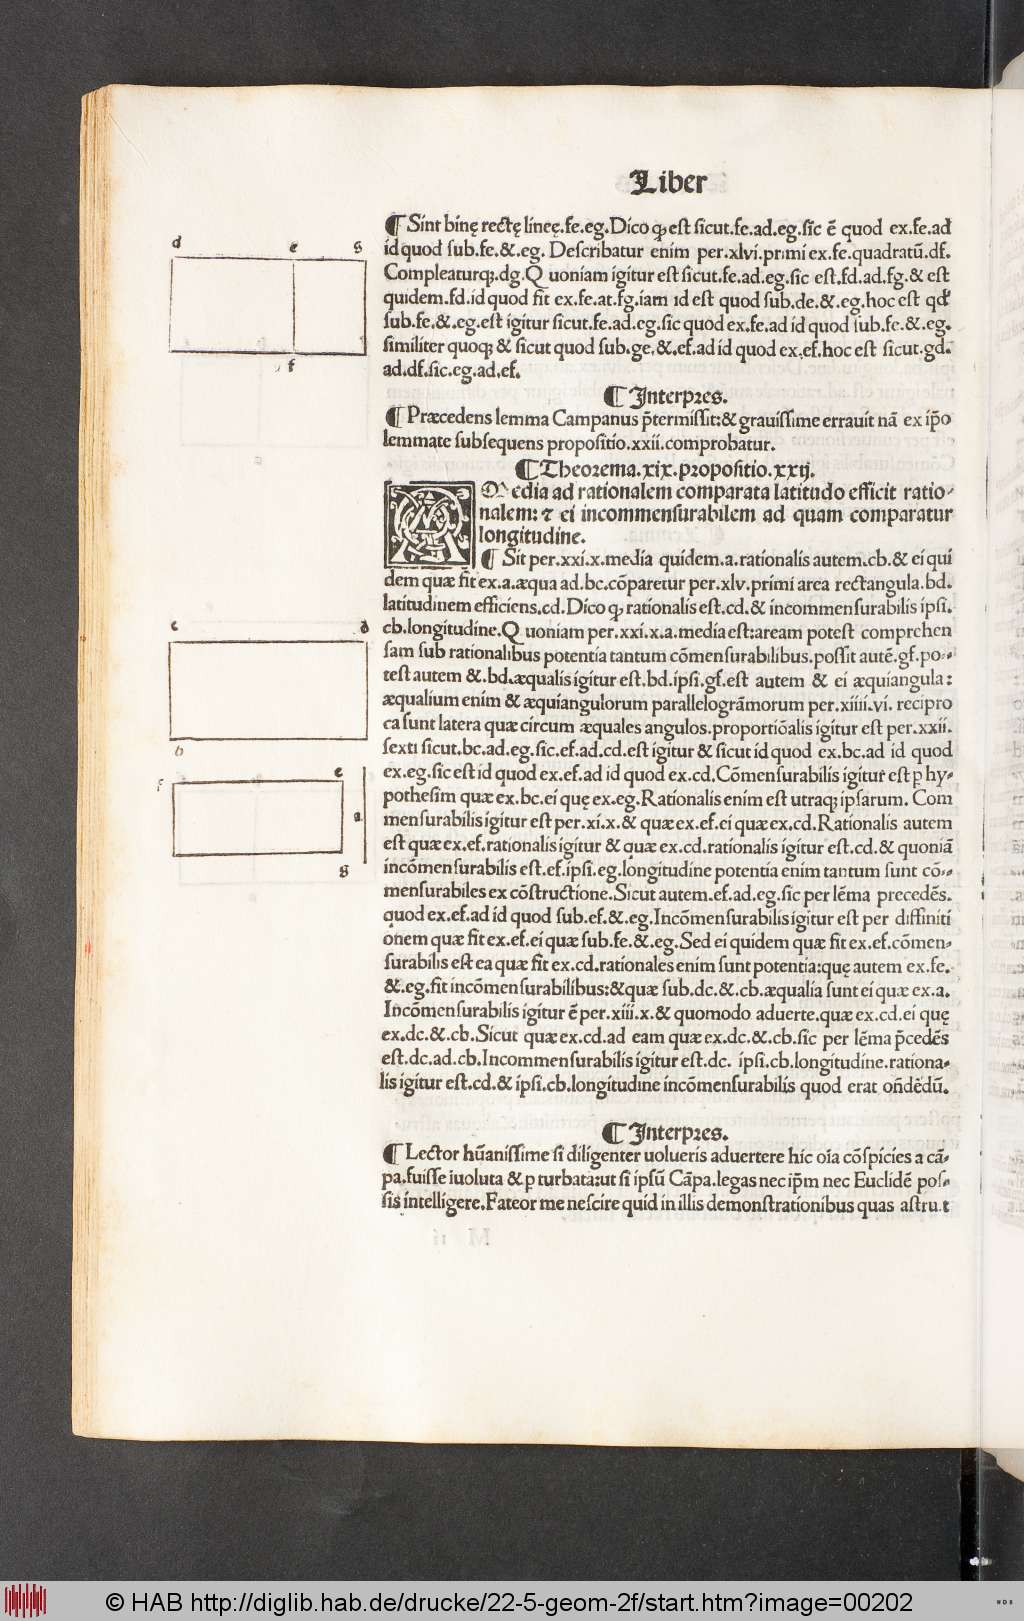 Liber
¶ Sint binę rectę lineę.fe.eg.Dico ꝙ est sicut.fe.ad.eg.sic ē quod ex.fe.ad
id quod sub.fe.&.eg. Describatur enim per.xlvi.primi ex.fe.quadratū.df.
Compleaturq;.dg.Quoniam igitur est sicut.fe.ad.eg.sic est.fd.ad.fg.& est
quidem.fd.id quod fit ex.fe.at.fg.iam id est quod sub.de.&.eg.hoc est qd'
sub.fe.&.eg.est igitur sicut.fe.ad.eg.sic quod ex.fe.ad id quod sub.fe.&.eg.
similiter quoq; & sicut quod sub.ge.&.ef.ad id quod ex.ef.hoc est sicut.gd.
ad.df.sic.eg.ad.ef.
¶ Interpres.
¶ Præcedens lemma Campanus p̄termissit:& grauissime errauit nā ex ip̄o
lemmate subsequens propositio.xxii.comprobatur.
¶ Theorema.xix.propositio.xxij.
Media ad rationalem comparata latitudo efficit ratio-
nalem: ⁊ ei incommensurabilem ad quam comparatur
longitudine.
¶ Sit per.xxi.x.media quidem.a.rationalis autem.cb.& ei qui
dem quæ fit ex.a.æqua ad.bc.cōparetur per.xlv.primi area rectangula.bd.
latitudinem efficiens.cd.Dico ꝙ rationalis est.cd.& incommensurabilis ipsi.
cb.longitudine.Quoniam per.xxi.x.a.media est:aream potest comprehen
sam sub rationalibus potentia tantum cōmensurabilibus.possit autē.gf.po-
test autem &.bd.æqualis igitur est.bd.ipsi.gf.est autem & ei æquiangula:
æqualium enim & æquiangulorum parallelogrāmorum per.xiiii.vi. recipro
ca sunt latera quæ circum æquales angulos.proportiōalis igitur est per.xxii.
sexti sicut.bc.ad.eg.sic.ef.ad.cd.est igitur & sicut id quod ex.bc.ad id quod
ex.eg.sic est id quod ex.ef.ad id quod ex.cd.Cōmensurabilis igitur est ꝑ hy-
pothesim quæ ex.bc.ei quę ex.eg.Rationalis enim est utraq; ipsarum. Com
mensurabilis igitur est per.xi.x.& quæ ex.ef.ei quæ ex.cd.Rationalis autem
est quæ ex.ef.rationalis igitur & quæ ex.cd.rationalis igitur est.cd.& quoniā
incōmensurabilis est.ef.ipsi.eg.longitudine potentia enim tantum sunt cō-
mensurabiles ex cōstructione.Sicut autem.ef.ad.eg.sic per lēma precedēs.
quod ex.ef.ad id quod sub.ef.&.eg.Incōmensurabilis igitur est per diffiniti
onem quæ fit ex.ef.ei quæ sub.fe.&.eg.Sed ei quidem quæ fit ex.ef.cōmen-
surabilis est ea quæ fit ex.cd.rationales enim sunt potentia:quę autem ex.fe.
&.eg.fit incōmensurabilibus:&quæ sub.dc.&.cb.æqualia sunt ei quæ ex.a.
Incōmensurabilis igitur ē per.xiii.x.& quomodo aduerte.quæ ex.cd.ei quę
ex.dc.&.cb.Sicut quæ ex.cd.ad eam quæ ex.dc.&.cb.sic per lēma p̄cedēs
est.dc.ad.cb.Incommensurabilis igitur est.dc. ipsi.cb.longitudine.rationa-
lis igitur est.cd.& ipsi.cb.longitudine incōmensurabilis quod erat on̄dēdū.
¶ Interpres.
¶ Lector hūanissime si diligenter uolueris aduertere hic oīa cōspicies a cā-
pa.fuisse iuoluta & ꝑturbata:ut si ipsū Cāpa.legas nec ip̄m nec Euclidē pos-
sis intelligere.Fateor me nescire quid in illis demonstrationibus quas astru.t
d e g
f
c d
b
f e
a
g
© HAB http://diglib.hab.de/drucke/22-5-geom-2f/start.htm?image=00202